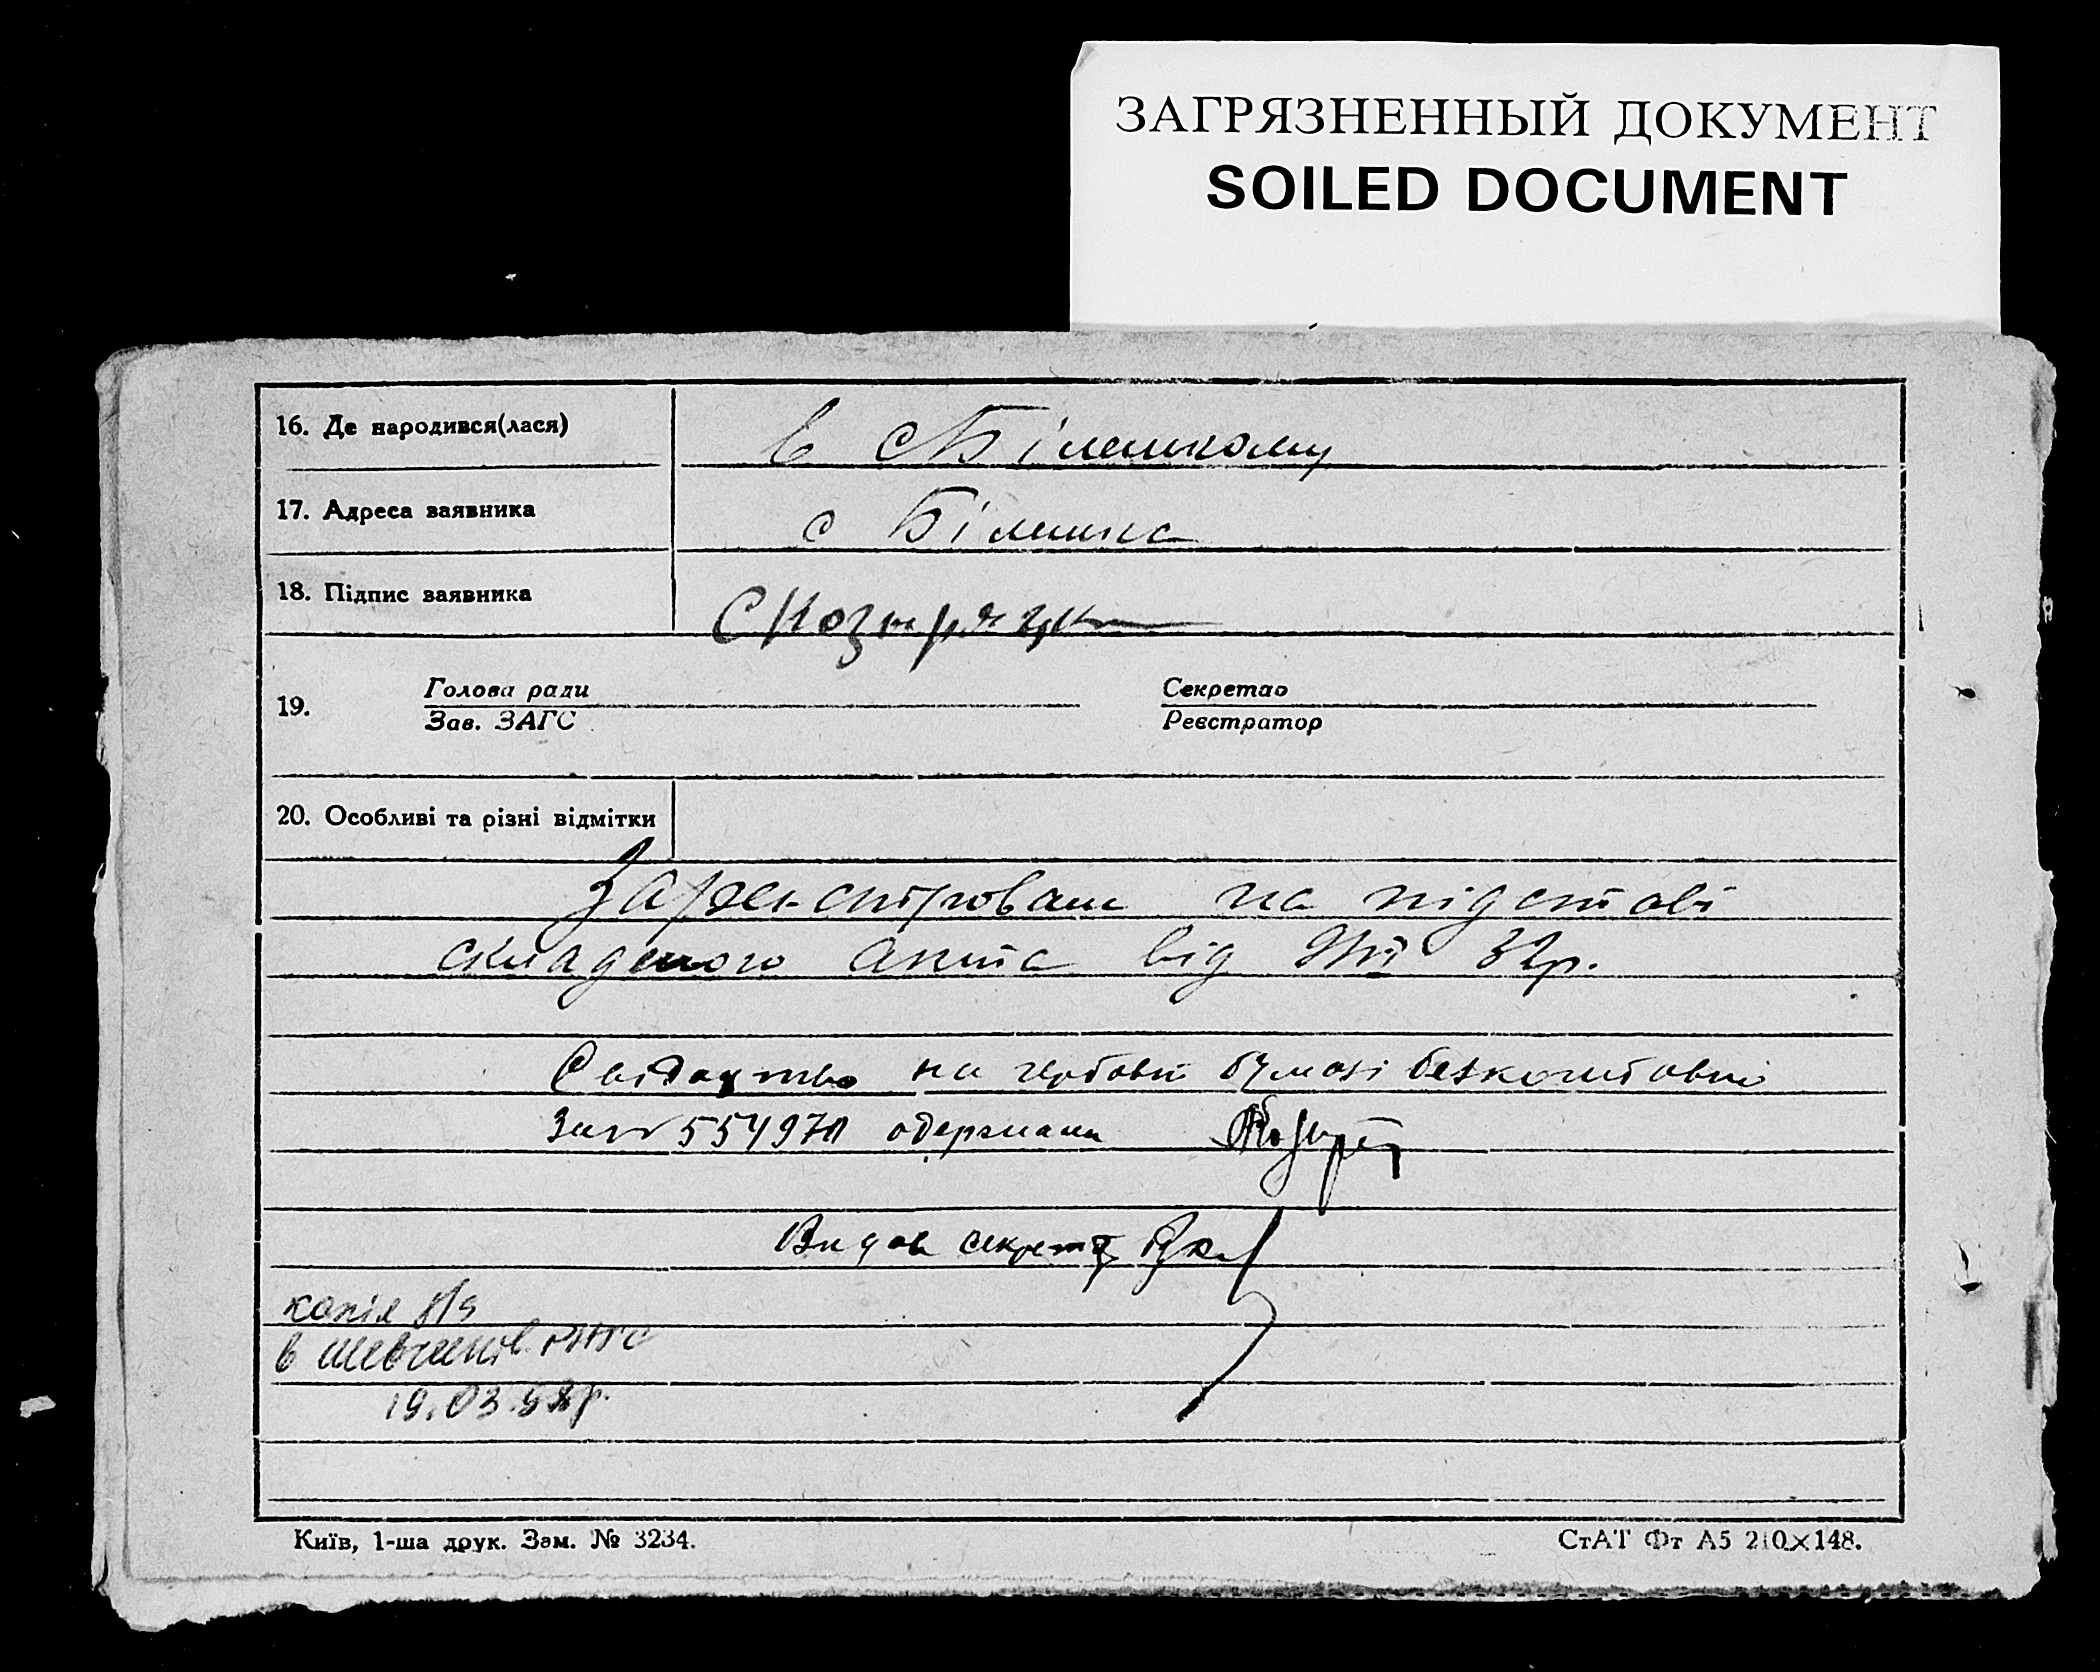 ЗАГРЯЗНЕННЫЙ ДОКУМЕНТ
SOILED DOCUMENT
16. Де народився(лася)
в с Білешкому
17. Адреса заявника
с Білешка
18. Підпис заявника
19. Голова ради Секретар
Зав. ЗАГС Реєстратор
20. Особливі та різні відмітки
на підставі
складеного акта від 32р.
Свідоцтво на гербовій бумазі безкоштовно
за № 554970 одержала
Видав секрет
копія
в шевченків.
19.03.58р.
Київ, 1-ша друк. Зам. № 3234.
СтАТ Фт А5 210×148.